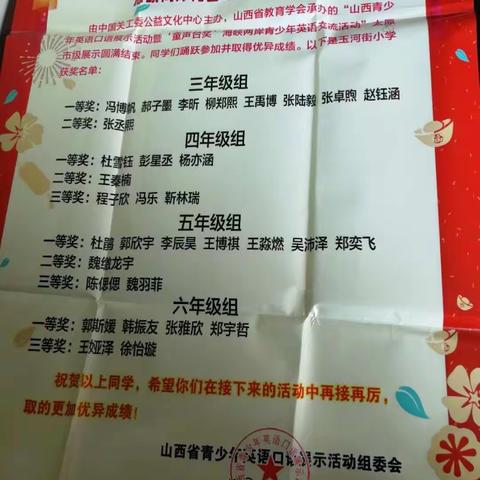 由中国关工委公益文化中心主办，山西省教育学会承办的“山西青少
年英语口语展示活动暨‘童声台奖’海峡两岸青少年英语交流活动”太原
市级展示圆满结束。同学们踊跃参加并取得优异成绩。以下是玉河街小学
获奖名单：
三年级组
一等奖：冯博帆 郝子墨 李昕 柳郑熙 王禹博 张陆毅 张卓煦 赵钰涵
二等奖：张丞熙
四年级组
一等奖：杜雪钰 彭星丞 杨亦涵
二等奖：王秦楠
三等奖：程子欣 冯乐 靳林瑞
五年级组
一等奖：杜鹃 郭欣宇 李辰昊 王博祺 王淼燃 吴沛泽 郑奕飞
二等奖：魏缴龙宇
三等奖：陈偲偲 魏羽菲
六年级组
一等奖：郭斯媛 韩振友 张雅欣 郑宇哲
三等奖：王娅泽 徐怡璇
祝贺以上同学，希望你们在接下来的活动中再接再厉，
取的更加优异成绩！
山西省青少年英语口语展示活动组委会